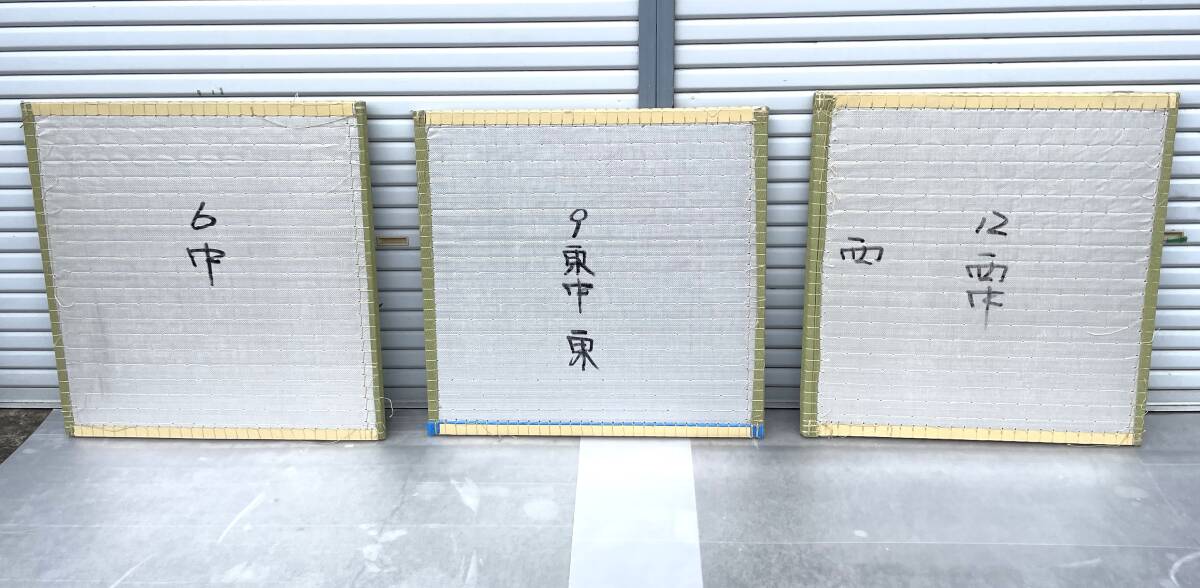 6
中
9
東
中
東
西
12
西
中